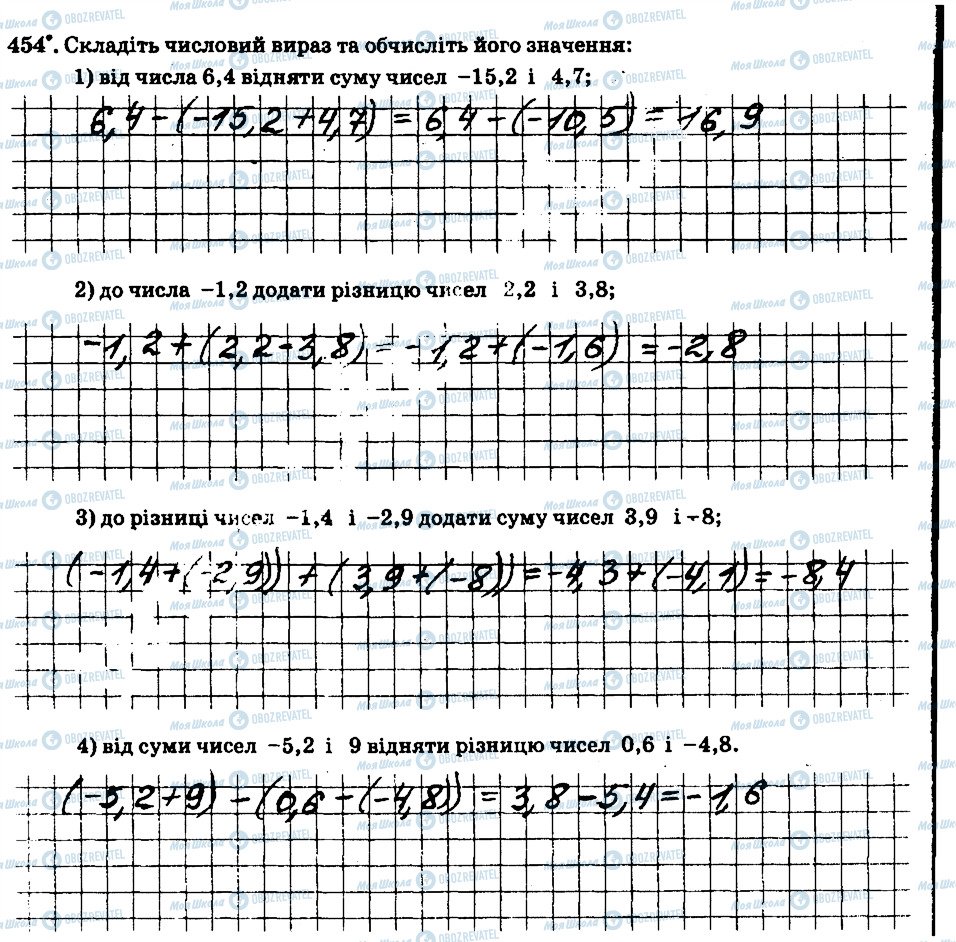 454°. Складіть числовий вираз та обчисліть його значення:
1) від числа 6,4 відняти суму чисел −15,2 і 4,7;
6,4 − (−15,2 + 4,7) = 6,4 − (−10,5) = 16,9
2) до числа −1,2 додати різницю чисел 2,2 і 3,8;
−1,2 + (2,2 − 3,8) = −1,2 + (−1,6) = −2,8
3) до різниці чисел −1,4 і −2,9 додати суму чисел 3,9 і −8;
(−1,4 + (−2,9)) + (3,9 + (−8)) = −4,3 + (−4,1) = −8,4
4) від суми чисел −5,2 і 9 відняти різницю чисел 0,6 і −4,8.
(−5,2 + 9) − (0,6 − (−4,8)) = 3,8 − 5,4 = −1,6